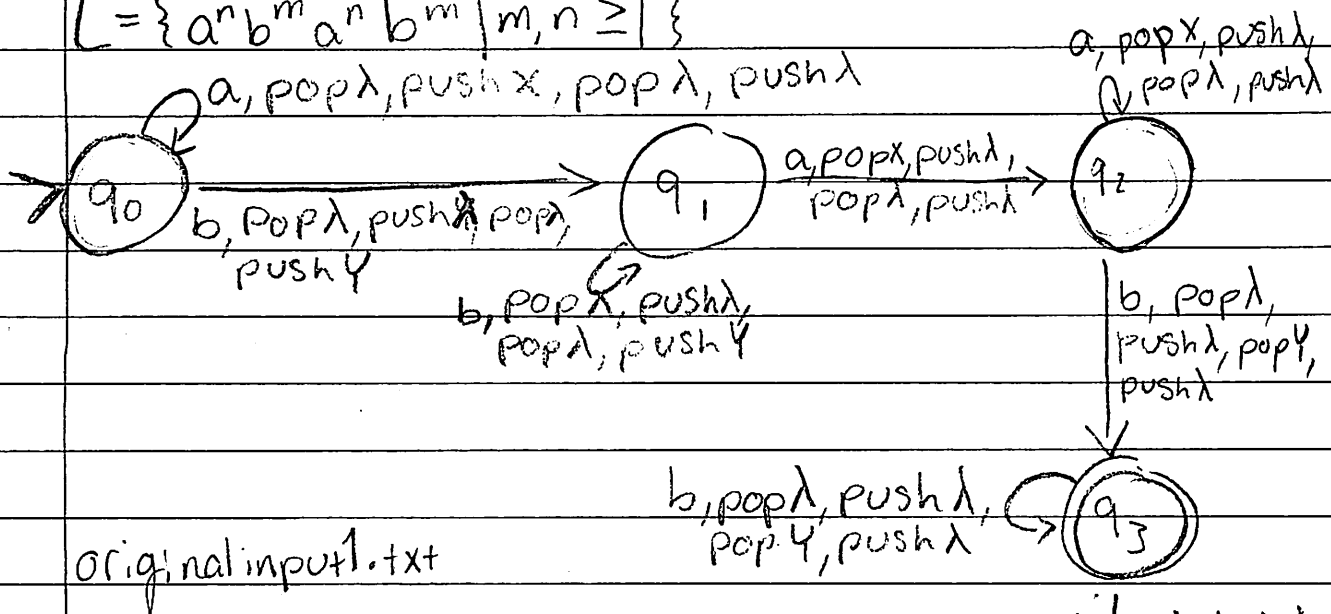 L = { aⁿ bᵐ aⁿ bᵐ | m, n ≥ 1 }
a, pop λ, push x, pop λ, push λ
a, pop x, push λ,
pop λ, push λ
q0
q1
q2
a, pop x, push λ,
pop λ, push λ
b, pop λ, push λ, pop λ,
push Y
b, pop λ, push λ,
pop λ, push Y
b, pop λ,
push λ, pop Y,
push λ
b, pop λ, push λ,
pop Y, push λ
q3
originalinput1.txt